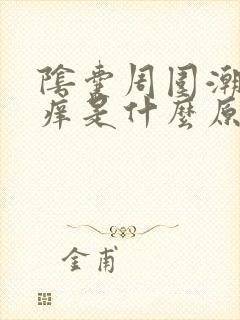 陰囊周围潮
痒是什麼原
金甫